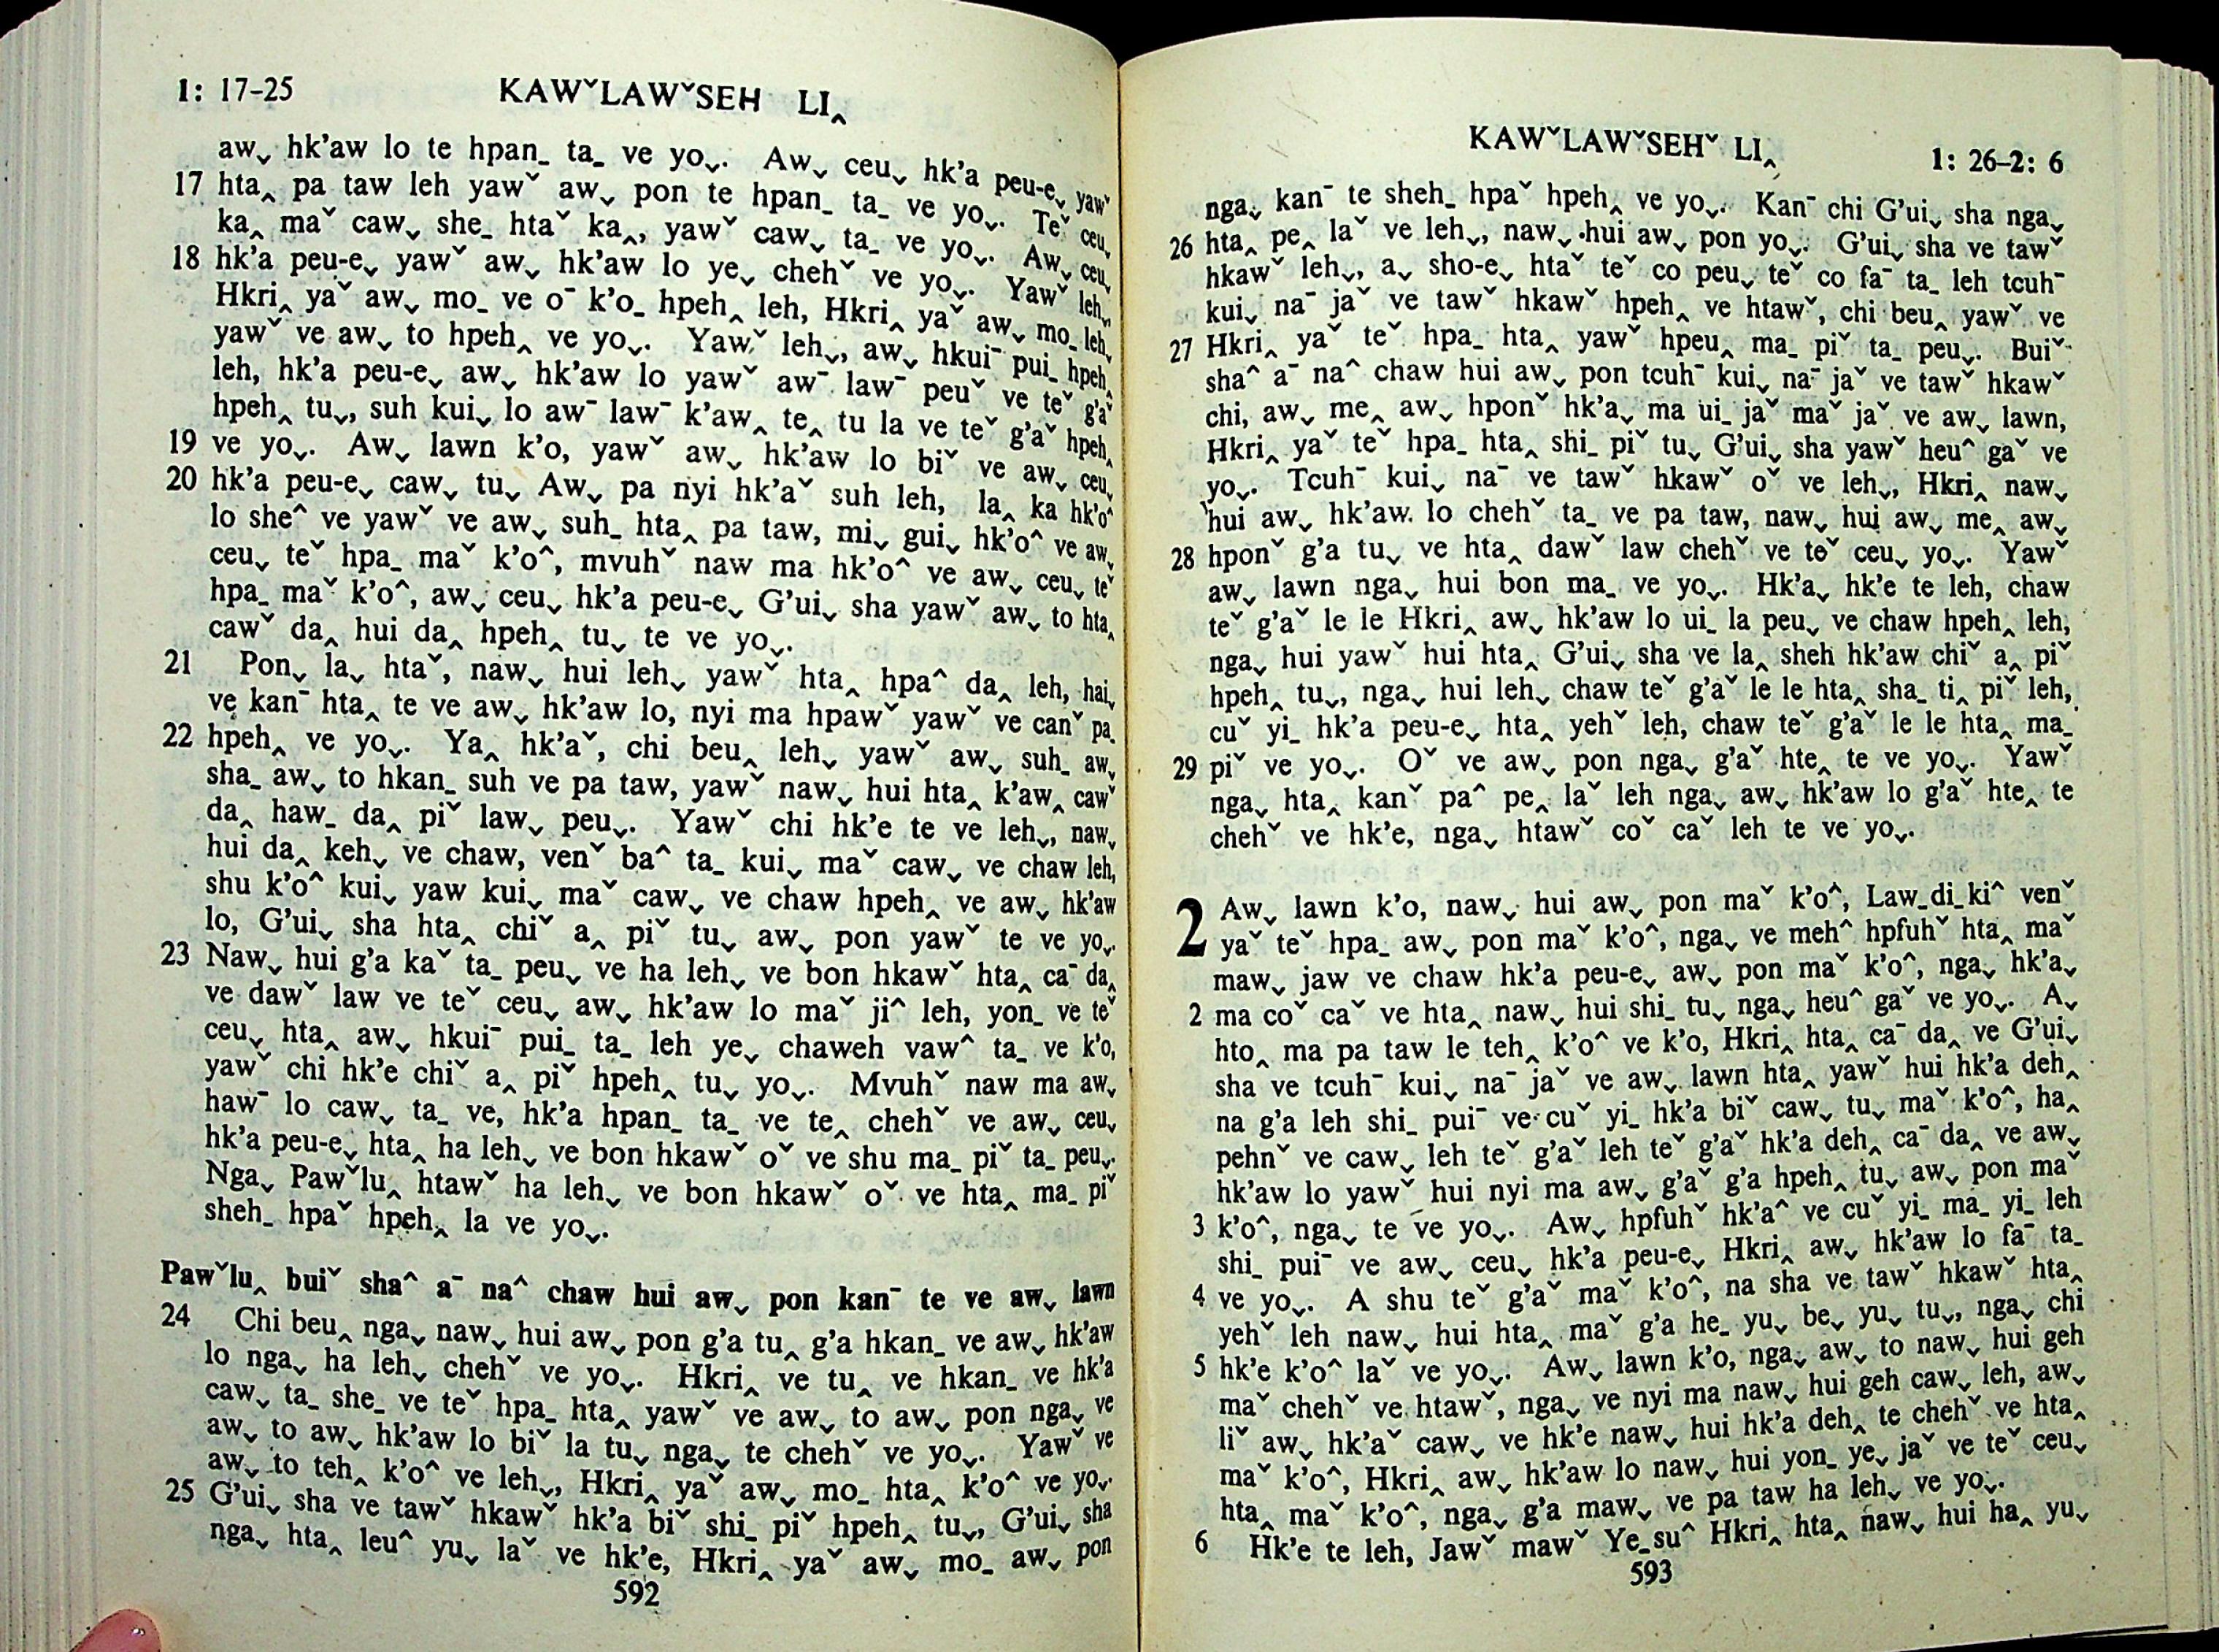 1: 17–25 KAWˇLAWˇSEH LIꞈ
aw˯ hk’aw lo te hpan_ ta_ ve yo˯. Aw˯ ceu˯ hk’a peu-e˯ yawˇ
17 htaꞈ pa taw leh yawˇ aw˯ pon te hpan_ ta_ ve yo˯. Teˇ ceu˯
kaꞈ maˇ caw˯ she_ htaˇ kaꞈ, yawˇ caw˯ ta_ ve yo˯. Aw˯ ceu˯
18 hk’a peu-e˯ yawˇ aw˯ hk’aw lo ye˯ chehˇ ve yo˯. Yawˇ leh˯,
Hkriꞈ yaˇ aw˯ mo_ ve oˉ k’o_ hpehꞈ leh, Hkriꞈ yaˇ aw˯ mo_ leh˯
yawˇ ve aw˯ to hpehꞈ ve yo˯. Yawˇ leh˯, aw˯ hkuiˉ pui_ hpehꞈ
leh, hk’a peu-e˯ aw˯ hk’aw lo yawˇ awˉ lawˉ peuˇ ve teˇ g’aˇ
hpehꞈ tu˯, suh kui˯ lo awˉ lawˉ k’awꞈ teꞈ tu la ve teˇ g’aˇ hpehꞈ
19 ve yo˯. Aw˯ lawn k’o, yawˇ aw˯ hk’aw lo biˇ ve aw˯ ceu˯
20 hk’a peu-e˯ caw˯ tu˯ Aw˯ pa nyi hk’aˇ suh leh, laꞈ ka hk’oˆ
lo sheˆ ve yawˇ ve aw˯ suh_ htaꞈ pa taw, mi˯ gui˯ hk’oˆ ve aw˯
ceu˯ teˇ hpa_ maˇ k’oˆ, mvuhˇ naw ma hk’oˆ ve aw˯ ceu˯ teˇ
hpa_ maˇ k’oˆ, aw˯ ceu˯ hk’a peu-e˯ G’ui˯ sha yawˇ aw˯ to htaꞈ
cawˇ daꞈ hui daꞈ hpehꞈ tu˯ te ve yo˯.
21 Pon˯ la˯ htaˇ, naw˯ hui leh˯ yawˇ htaꞈ hpaˆ daꞈ leh, hai˯
ve kanˉ htaꞈ te ve aw˯ hk’aw lo, nyi ma hpawˇ yawˇ ve canˇ pa_
22 hpehꞈ ve yo˯. Yaꞈ hk’aˇ, chi beuꞈ leh˯ yawˇ aw˯ suh_ aw˯
sha_ aw˯ to hkan_ suh ve pa taw, yawˇ naw˯ hui htaꞈ k’awꞈ cawˇ
daꞈ haw_ daꞈ piˇ law˯ peu˯. Yawˇ chi hk’e te ve leh˯, naw˯
hui daꞈ keh˯ ve chaw, venˇ baˆ ta_ kui˯ maˇ caw˯ ve chaw leh,
shu k’oˆ kui˯ yaw kui˯ maˇ caw˯ ve chaw hpehꞈ ve aw˯ hk’aw
lo, G’ui˯ sha htaꞈ chiˇ aꞈ piˇ tu˯ aw˯ pon yawˇ te ve yo˯.
23 Naw˯ hui g’a kaˇ ta_ peu˯ ve ha leh˯ ve bon hkawˇ htaꞈ caˉ daꞈ
ve dawˇ law ve teˇ ceu˯ aw˯ hk’aw lo maˇ jiˆ leh, yon_ ve teˇ
ceu˯ htaꞈ aw˯ hkuiˉ pui_ ta_ leh ye˯ chaweh vawˆ ta_ ve k’o,
yawˇ chi hk’e chiˇ aꞈ piˇ hpehꞈ tu˯ yo˯. Mvuhˇ naw ma aw˯
hawˉ lo caw˯ ta_ ve, hk’a hpan_ ta_ ve teꞈ chehˇ ve aw˯ ceu˯
hk’a peu-e˯ htaꞈ ha leh˯ ve bon hkawˇ oˇ ve shu ma_ piˇ ta_ peu˯.
Nga˯ Pawˇluꞈ htawˇ ha leh˯ ve bon hkawˇ oˇ ve htaꞈ ma_ piˇ
sheh_ hpaˇ hpehꞈ la ve yo˯.
Pawˇluꞈ buiˇ shaˆ aˉ naˆ chaw hui aw˯ pon kanˉ te ve aw˯ lawn
24 Chi beuꞈ nga˯ naw˯ hui aw˯ pon g’a tuꞈ g’a hkan_ ve aw˯ hk’aw
lo nga˯ ha leh˯ chehˇ ve yo˯. Hkriꞈ ve tuꞈ ve hkan_ ve hk’a
caw˯ ta_ she_ ve teˇ hpa_ htaꞈ yawˇ ve aw˯ to aw˯ pon nga˯ ve
aw˯ to aw˯ hk’aw lo biˇ la tu˯ nga˯ te chehˇ ve yo˯. Yawˇ ve
aw˯ to tehꞈ k’oˆ ve leh˯, Hkriꞈ yaˇ aw˯ mo_ htaꞈ k’oˆ ve yo˯.
25 G’ui˯ sha ve tawˇ hkawˇ hk’a biˇ shi_ piˇ hpehꞈ tu˯, G’ui˯ sha
nga˯ htaꞈ leuˆ yu˯ laˇ ve hk’e, Hkriꞈ yaˇ aw˯ mo_ aw˯ pon
592
KAWˇLAWˇSEHˇ LIꞈ 1: 26–2: 6
nga˯ kanˉ te sheh_ hpaˇ hpehꞈ ve yo˯. Kanˉ chi G’ui˯ sha nga˯
26 htaꞈ peꞈ laˇ ve leh˯, naw˯ hui aw˯ pon yo˯. G’ui˯ sha ve tawˇ
hkawˇ leh˯, a˯ sho-e˯ htaˇ teˇ co peu˯ teˇ co faˉ ta_ leh tcuhˉ
kui˯ naˉ jaˇ ve tawˇ hkawˇ hpehꞈ ve htawˇ, chi beuꞈ yawˇ ve
27 Hkriꞈ yaˇ teˇ hpa_ htaꞈ yawˇ hpeuꞈ ma_ piˇ ta_ peu˯. Buiˇ
shaˆ aˉ naˆ chaw hui aw˯ pon tcuhˉ kui˯ naˉ jaˇ ve tawˇ hkawˇ
chi, aw˯ meꞈ aw˯ hponˇ hk’a˯ ma ui_ jaˇ maˇ jaˇ ve aw˯ lawn,
Hkriꞈ yaˇ teˇ hpa_ htaꞈ shi_ piˇ tu˯ G’ui˯ sha yawˇ heuˆ gaˇ ve
yo˯. Tcuhˉ kui˯ naˉ ve tawˇ hkawˇ oˇ ve leh˯, Hkriꞈ naw˯
hui aw˯ hk’aw lo chehˇ ta_ ve pa taw, naw˯ hui aw˯ meꞈ aw˯
28 hponˇ g’a tu˯ ve htaꞈ dawˇ law chehˇ ve teˇ ceu˯ yo˯. Yawˇ
aw˯ lawn nga˯ hui bon ma_ ve yo˯. Hk’a˯ hk’e te leh, chaw
teˇ g’aˇ le le Hkriꞈ aw˯ hk’aw lo ui_ la peu˯ ve chaw hpehꞈ leh,
nga˯ hui yawˇ hui htaꞈ G’ui˯ sha ve laꞈ sheh hk’aw chiˇ aꞈ piˇ
hpehꞈ tu˯, nga˯ hui leh˯ chaw teˇ g’aˇ le le htaꞈ sha_ tiꞈ piˇ leh,
cuˇ yi_ hk’a peu-e˯ htaꞈ yehˇ leh, chaw teˇ g’aˇ le le htaꞈ ma_
29 piˇ ve yo˯. Oˇ ve aw˯ pon nga˯ g’aˇ hteꞈ te ve yo˯. Yawˇ
nga˯ htaꞈ kanˇ paˆ peꞈ laˇ leh nga˯ aw˯ hk’aw lo g’aˇ hteꞈ te
chehˇ ve hk’e, nga˯ htawˇ coˇ caˇ leh te ve yo˯.
2 Aw˯ lawn k’o, naw˯ hui aw˯ pon maˇ k’oˆ, Law_di_kiˆ venˇ
yaˇ teˇ hpa_ aw˯ pon maˇ k’oˆ, nga˯ ve mehˆ hpfuhˇ htaꞈ maˇ
maw˯ jaw ve chaw hk’a peu-e˯ aw˯ pon maˇ k’oˆ, nga˯ hk’a˯
2 ma coˇ caˇ ve htaꞈ naw˯ hui shi_ tu˯ nga˯ heuˆ gaˇ ve yo˯. A˯
htoꞈ ma pa taw le tehꞈ k’oˆ ve k’o, Hkriꞈ htaꞈ caˉ daꞈ ve G’ui˯
sha ve tcuhˉ kui˯ naˉ jaˇ ve aw˯ lawn htaꞈ yawˇ hui hk’a dehꞈ
na g’a leh shi_ puiˉ ve cuˇ yi_ hk’a biˇ caw˯ tu˯ maˇ k’oˆ, haꞈ
pehnˇ ve caw˯ leh teˇ g’aˇ leh teˇ g’aˇ hk’a dehꞈ caˉ daꞈ ve aw˯
hk’aw lo yawˇ hui nyi ma aw˯ g’aˇ g’a hpehꞈ tu˯ aw˯ pon maˇ
3 k’oˆ, nga˯ te ve yo˯. Aw˯ hpfuhˇ hk’aˆ ve cuˇ yi_ ma_ yi_ leh
shi_ puiˉ ve aw˯ ceu˯ hk’a peu-e˯ Hkriꞈ aw˯ hk’aw lo faˉ ta_
4 ve yo˯. A shu teˇ g’aˇ maˇ k’oˆ, na sha ve tawˇ hkawˇ htaꞈ
yehˇ leh naw˯ hui htaꞈ maˇ g’a he_ yu˯ be˯ yu˯ tu˯, nga˯ chi
5 hk’e k’oˆ laˇ ve yo˯. Aw˯ lawn k’o, nga˯ aw˯ to naw˯ hui geh
maˇ chehˇ ve htawˇ, nga˯ ve nyi ma naw˯ hui geh caw˯ leh, aw˯
liˇ aw˯ hk’aˇ caw˯ ve hk’e naw˯ hui hk’a dehꞈ te chehˇ ve htaꞈ
maˇ k’oˆ, Hkriꞈ aw˯ hk’aw lo naw˯ hui yon_ ye˯ jaˇ ve teˇ ceu˯
htaꞈ maˇ k’oˆ, nga˯ g’a maw˯ ve pa taw ha leh˯ ve yo˯.
6 Hk’e te leh, Jawˇ mawˇ Ye_suˆ Hkriꞈ htaꞈ naw˯ hui haꞈ yu˯
593